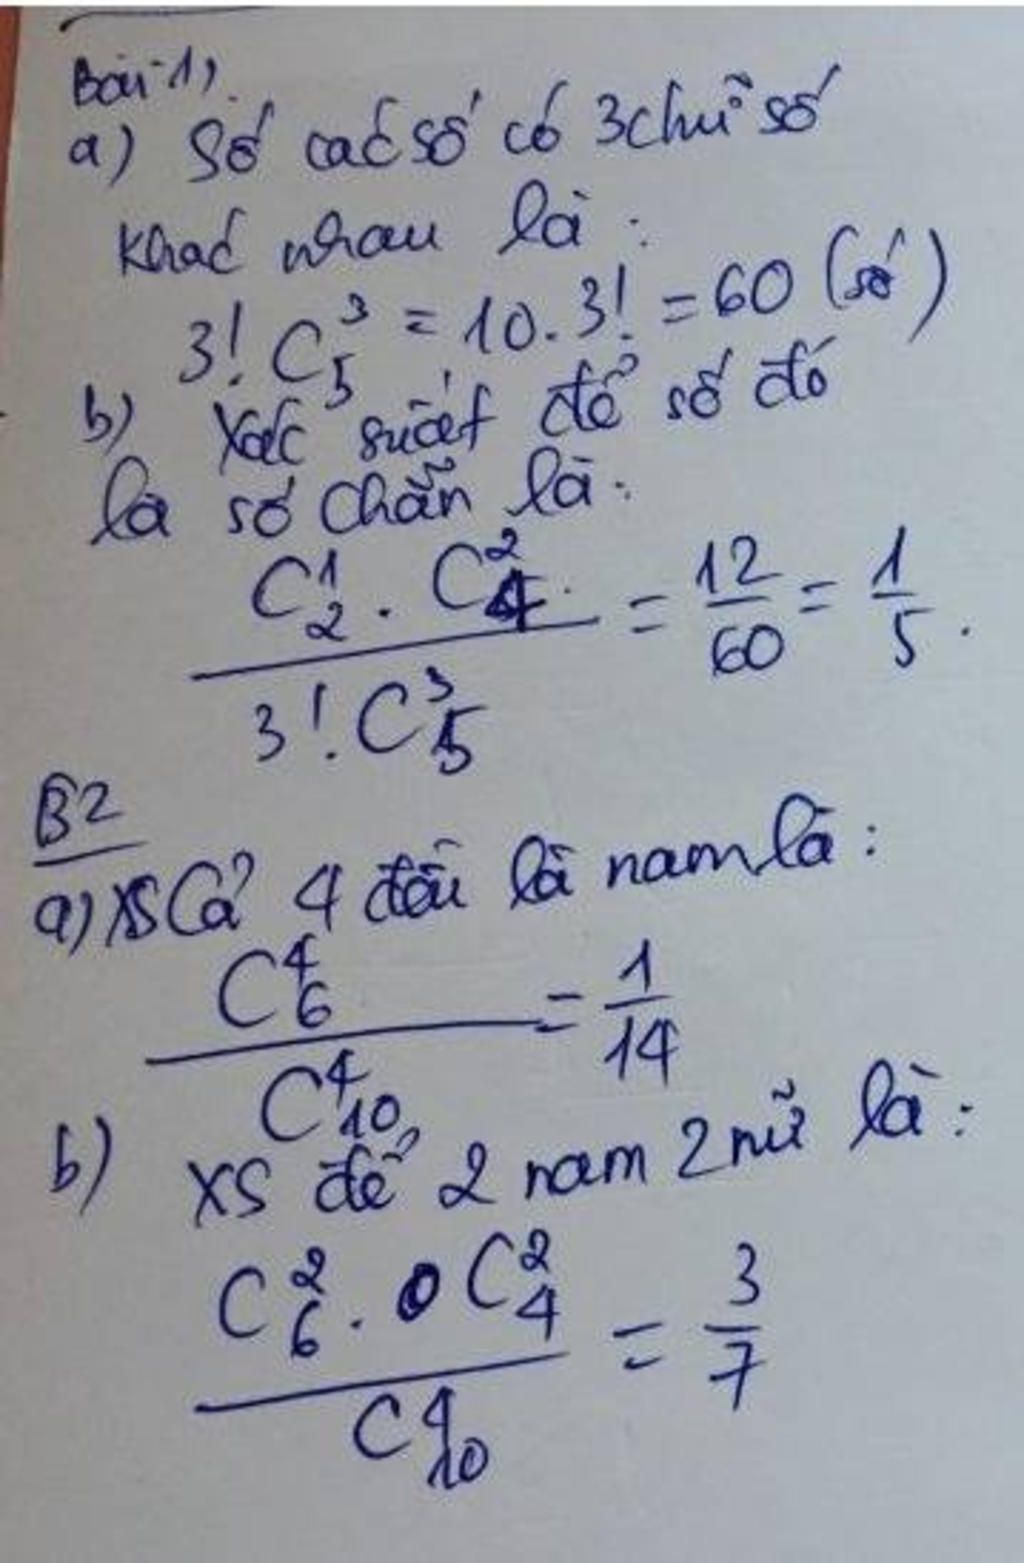 Bài 1,
a) Số các số có 3 chữ số
khác nhau là :
3! . C₅³ = 10 . 3! = 60 (số)
b) Xác suất để số đó
là số chẵn là :
C₂¹ . C₄² / 3! . C₅³ = 12/60 = 1/5 .
B2
a) XS Cả 4 đều là nam là :
C₆⁴ / C₁₀⁴ = 1/14
b) XS để 2 nam 2 nữ là :
C₆² . C₄² / C₁₀⁴ = 3/7